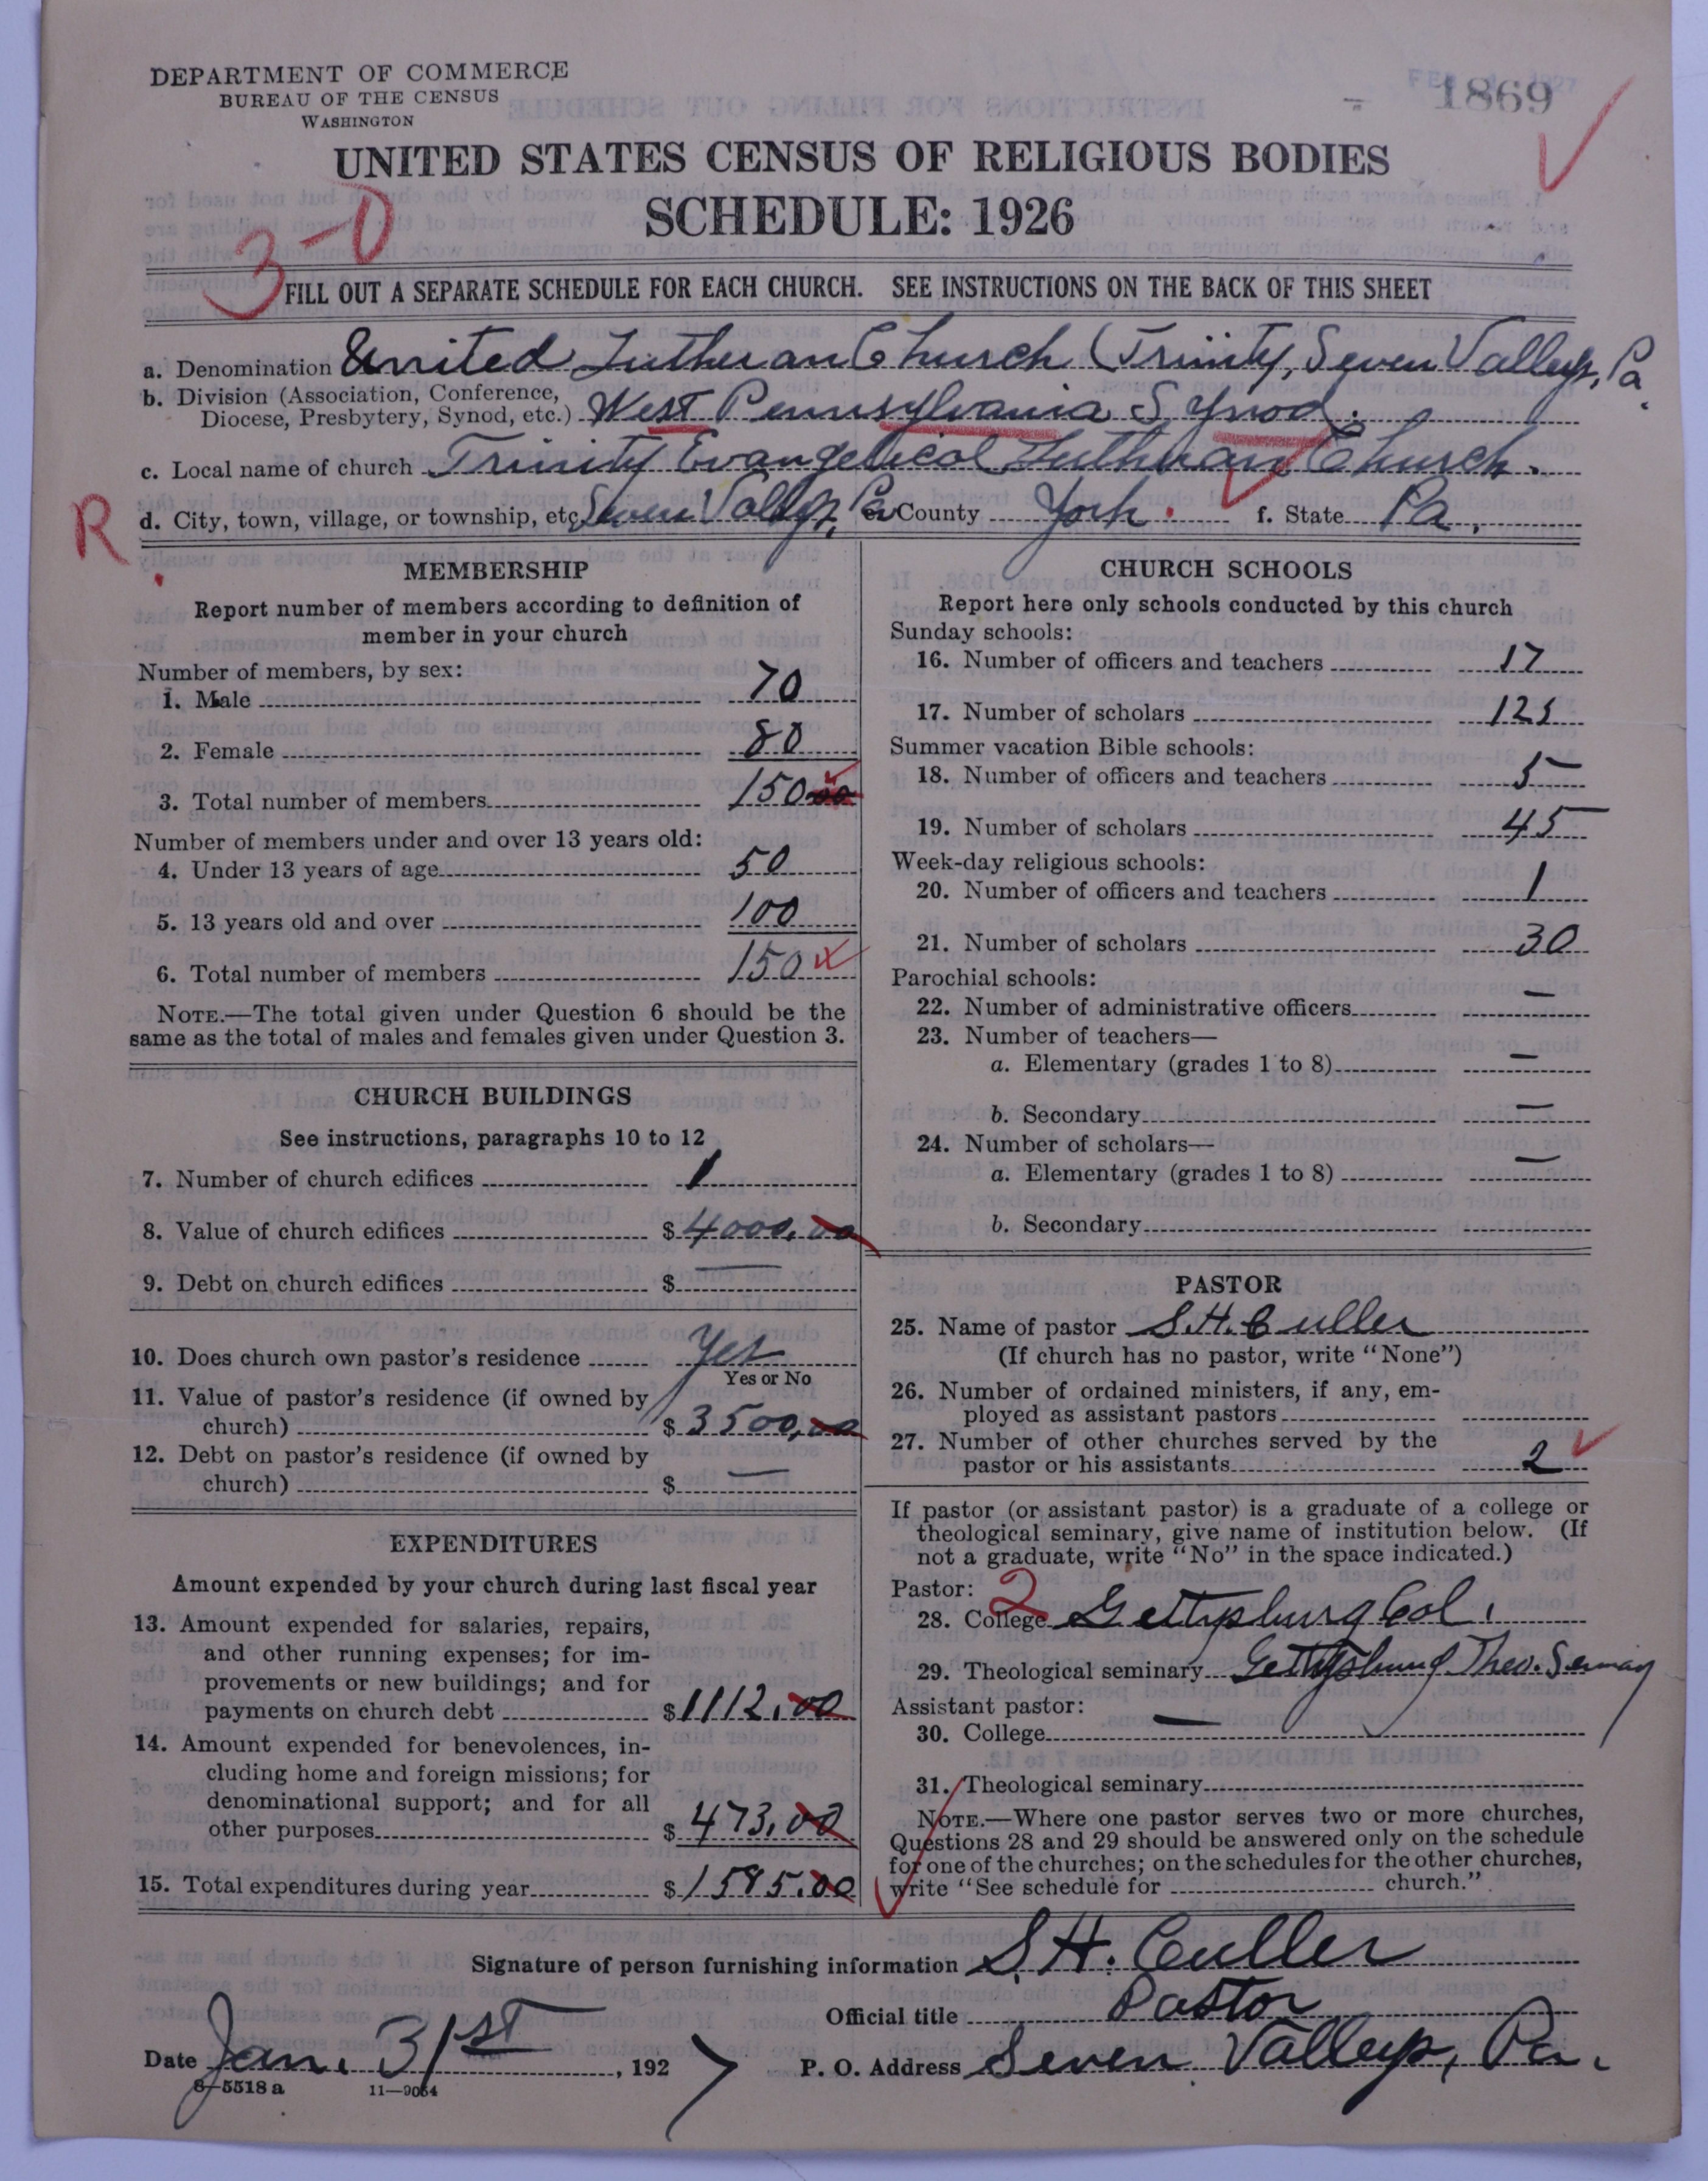 DEPARTMENT OF COMMERCE
BUREAU OF THE CENSUS
WASHINGTON
1869
UNITED STATES CENSUS OF RELIGIOUS BODIES
SCHEDULE: 1926
3-0
FILL OUT A SEPARATE SCHEDULE FOR EACH CHURCH. SEE INSTRUCTIONS ON THE BACK OF THIS SHEET
a. Denomination United Lutheran Church (Trinity, Seven Valleys, Pa.
b. Division (Association, Conference,
Diocese, Presbytery, Synod, etc.) West Pennsylvania Synod.
c. Local name of church Trinity Evangelical Lutheran Church.
R d. City, town, village, or township, etc. Seven Valleys, Pa. County York. f. State Pa.
MEMBERSHIP
Report number of members according to definition of
member in your church
Number of members, by sex:
1. Male 70
2. Female 80
3. Total number of members 150 00
Number of members under and over 13 years old:
4. Under 13 years of age 50
5. 13 years old and over 100
6. Total number of members 150
NOTE.—The total given under Question 6 should be the
same as the total of males and females given under Question 3.
CHURCH BUILDINGS
See instructions, paragraphs 10 to 12
7. Number of church edifices 1
8. Value of church edifices $4000.00
9. Debt on church edifices $ —
10. Does church own pastor's residence Yes
Yes or No
11. Value of pastor's residence (if owned by
church) $3500.00
12. Debt on pastor's residence (if owned by
church) $ —
EXPENDITURES
Amount expended by your church during last fiscal year
13. Amount expended for salaries, repairs,
and other running expenses; for im-
provements or new buildings; and for
payments on church debt $1112.00
14. Amount expended for benevolences, in-
cluding home and foreign missions; for
denominational support; and for all
other purposes $473.00
15. Total expenditures during year $1585.00
CHURCH SCHOOLS
Report here only schools conducted by this church
Sunday schools:
16. Number of officers and teachers 17
17. Number of scholars 125
Summer vacation Bible schools:
18. Number of officers and teachers 5
19. Number of scholars 45
Week-day religious schools:
20. Number of officers and teachers 1
21. Number of scholars 30
Parochial schools:
22. Number of administrative officers —
23. Number of teachers—
a. Elementary (grades 1 to 8) —
b. Secondary —
24. Number of scholars—
a. Elementary (grades 1 to 8) —
b. Secondary
PASTOR
25. Name of pastor S.H. Culler
(If church has no pastor, write "None")
26. Number of ordained ministers, if any, em-
ployed as assistant pastors
27. Number of other churches served by the
pastor or his assistants 2
If pastor (or assistant pastor) is a graduate of a college or
theological seminary, give name of institution below. (If
not a graduate, write "No" in the space indicated.)
Pastor: 2
28. College Gettysburg Col.
29. Theological seminary Gettysburg Theo. Semnay
Assistant pastor:
30. College —
31. Theological seminary
NOTE.—Where one pastor serves two or more churches,
Questions 28 and 29 should be answered only on the schedule
for one of the churches; on the schedules for the other churches,
write "See schedule for church."
Signature of person furnishing information S.H. Culler
Official title Pastor
Date Jan. 31st, 1927 P. O. Address Seven Valleys, Pa.
8—5518 a 11—9054